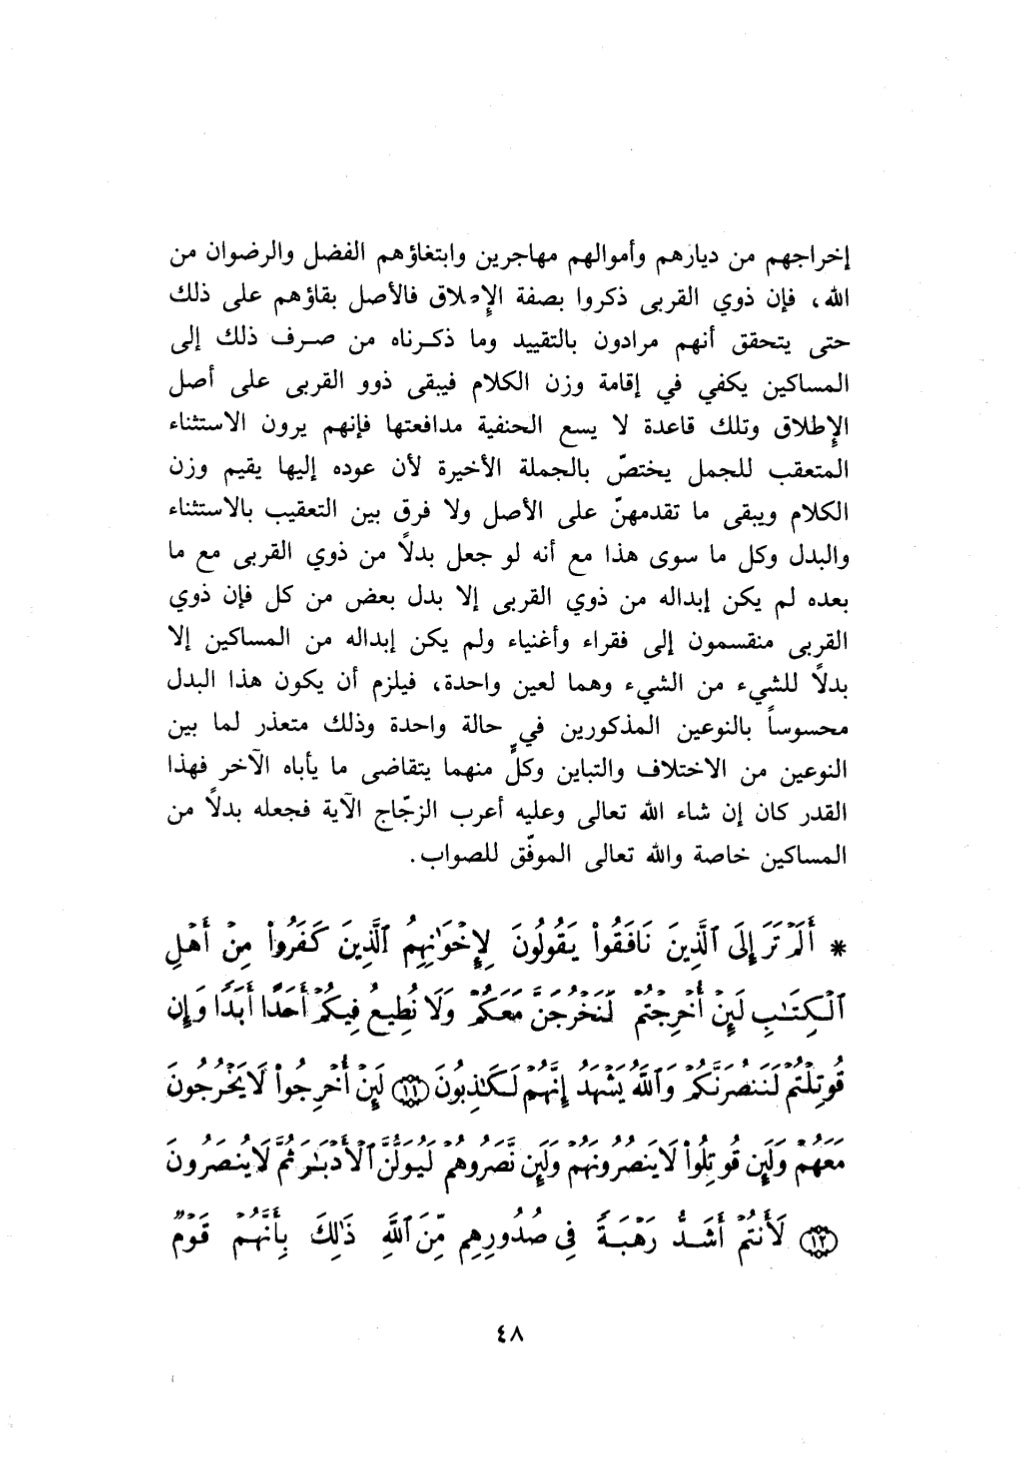 إخراجهم من ديارهم وأموالهم مهاجرين وابتغاؤهم الفضل والرضوان من
الله، فإن ذوي القربى ذكروا بصفة الإطلاق فالأصل بقاؤهم على ذلك
حتى يتحقق أنهم مرادون بالتقييد وما ذكـرناه من صـرف ذلك إلى
المساكين يكفي في إقامة وزن الكلام فيبقى ذوو القربى على أصل
الإطلاق وتلك قاعدة لا يسع الحنفية مدافعتها فإنهم يرون الاستثناء
المتعقب للجمل يختصّ بالجملة الأخيرة لأن عوده إليها يقيم وزن
الكلام ويبقى ما تقدمهنّ على الأصل ولا فرق بين التعقيب بالاستثناء
والبدل وكل ما سوى هذا مع أنه لو جعل بدلاً من ذوي القربى مع ما
بعده لم يكن إبداله من ذوي القربى إلا بدل بعض من كل فإن ذوي
القربى منقسمون إلى فقراء وأغنياء ولم يكن إبداله من المساكين إلا
بدلاً للشيء من الشيء وهما لعين واحدة، فيلزم أن يكون هذا البدل
محسوساً بالنوعين المذكورين في حالة واحدة وذلك متعذر لما بين
النوعين من الاختلاف والتباين وكلٍّ منهما يتقاضى ما يأباه الآخر فهذا
القدر كان إن شاء الله تعالى وعليه أعرب الزجّاج الآية فجعله بدلاً من
المساكين خاصة والله تعالى الموفّق للصواب.
* أَلَمْ تَرَ إِلَى ٱلَّذِينَ نَافَقُواْ يَقُولُونَ لِإِخْوَٰنِهِمُ ٱلَّذِينَ كَفَرُواْ مِنْ أَهْلِ
ٱلْكِتَـٰبِ لَئِنْ أُخْرِجْتُمْ لَنَخْرُجَنَّ مَعَكُمْ وَلَا نُطِيعُ فِيكُمْ أَحَدًا أَبَدًا وَإِن
قُوتِلْتُمْ لَنَنصُرَنَّكُمْ وَٱللَّهُ يَشْهَدُ إِنَّهُمْ لَكَـٰذِبُونَ ﴿١١﴾ لَئِنْ أُخْرِجُواْ لَا يَخْرُجُونَ
مَعَهُمْ وَلَئِن قُوتِلُواْ لَا يَنصُرُونَهُمْ وَلَئِن نَّصَرُوهُمْ لَيُوَلُّنَّ ٱلْأَدْبَـٰرَ ثُمَّ لَا يُنصَرُونَ
﴿١٢﴾ لَأَنتُمْ أَشَدُّ رَهْبَةً فِى صُدُورِهِم مِّنَ ٱللَّهِ ذَٰلِكَ بِأَنَّهُمْ قَوْمٌ
٤٨